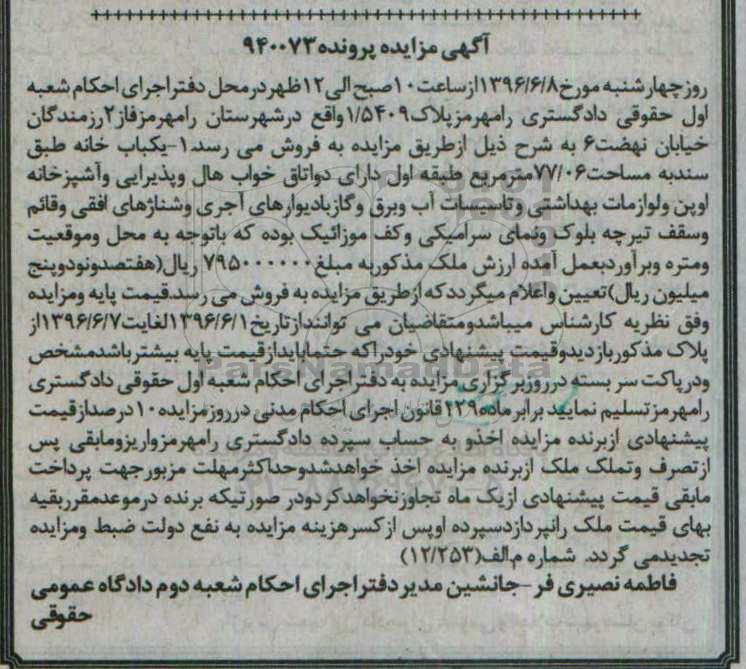 آگهی مزایده پرونده۹۴۰۰۷۳
روزچهارشنبه مورخ۱۳۹۶/۶/۸ازساعت۱۰صبح الی۱۲ظهردرمحل دفتراجرای احکام شعبه
اول حقوقی دادگستری رامهرمزپلاک۱/۵۴۰۹واقع درشهرستان رامهرمزفاز۲رزمندگان
خیابان نهضت۶ به شرح ذیل ازطریق مزایده به فروش می رسد.۱-یکباب خانه طبق
سندبه مساحت۷۷/۰۶مترمربع طبقه اول دارای دواتاق خواب هال وپذیرایی وآشپزخانه
اوپن ولوازمات بهداشتی وتاسیسات آب وبرق وگازبادیوارهای آجری وشناژهای افقی وقائم
وسقف تیرچه بلوک ونمای سرامیکی وکف موزائیک بوده که باتوجه به محل وموقعیت
ومتره وبرآوردبعمل آمده ارزش ملک مذکوربه مبلغ۷۹۵۰۰۰۰۰۰ ریال(هفتصدونودوپنج
میلیون ریال)تعیین واعلام میگرددکه ازطریق مزایده به فروش می رسد.قیمت پایه ومزایده
وفق نظریه کارشناس میباشدومتقاضیان می توانندازتاریخ۱۳۹۶/۶/۱لغایت۱۳۹۶/۶/۷از
پلاک مذکوربازدیدوقیمت پیشنهادی خودراکه حتمابایدازقیمت پایه بیشترباشدمشخص
ودرپاکت سر بسته درروزبرگزاری مزایده به دفتراجرای احکام شعبه اول حقوقی دادگستری
رامهرمزتسلیم نمایید برابرماده۱۲۹قانون اجرای احکام مدنی درروزمزایده۱۰درصدازقیمت
پیشنهادی ازبرنده مزایده اخذو به حساب سپرده دادگستری رامهرمزواریزومابقی پس
ازتصرف وتملک ملک ازبرنده مزایده اخذ خواهدشدوحداکثرمهلت مزبورجهت پرداخت
مابقی قیمت پیشنهادی ازیک ماه تجاوزنخواهدکردودر صورتیکه برنده درموعدمقرربقیه
بهای قیمت ملک رانپردازدسپرده اوپس ازکسرهزینه مزایده به نفع دولت ضبط ومزایده
تجدیدمی گردد. شماره م.الف(۱۲/۲۵۳)
فاطمه نصیری فر-جانشین مدیردفتراجرای احکام شعبه دوم دادگاه عمومی
حقوقی
ParsNamadData